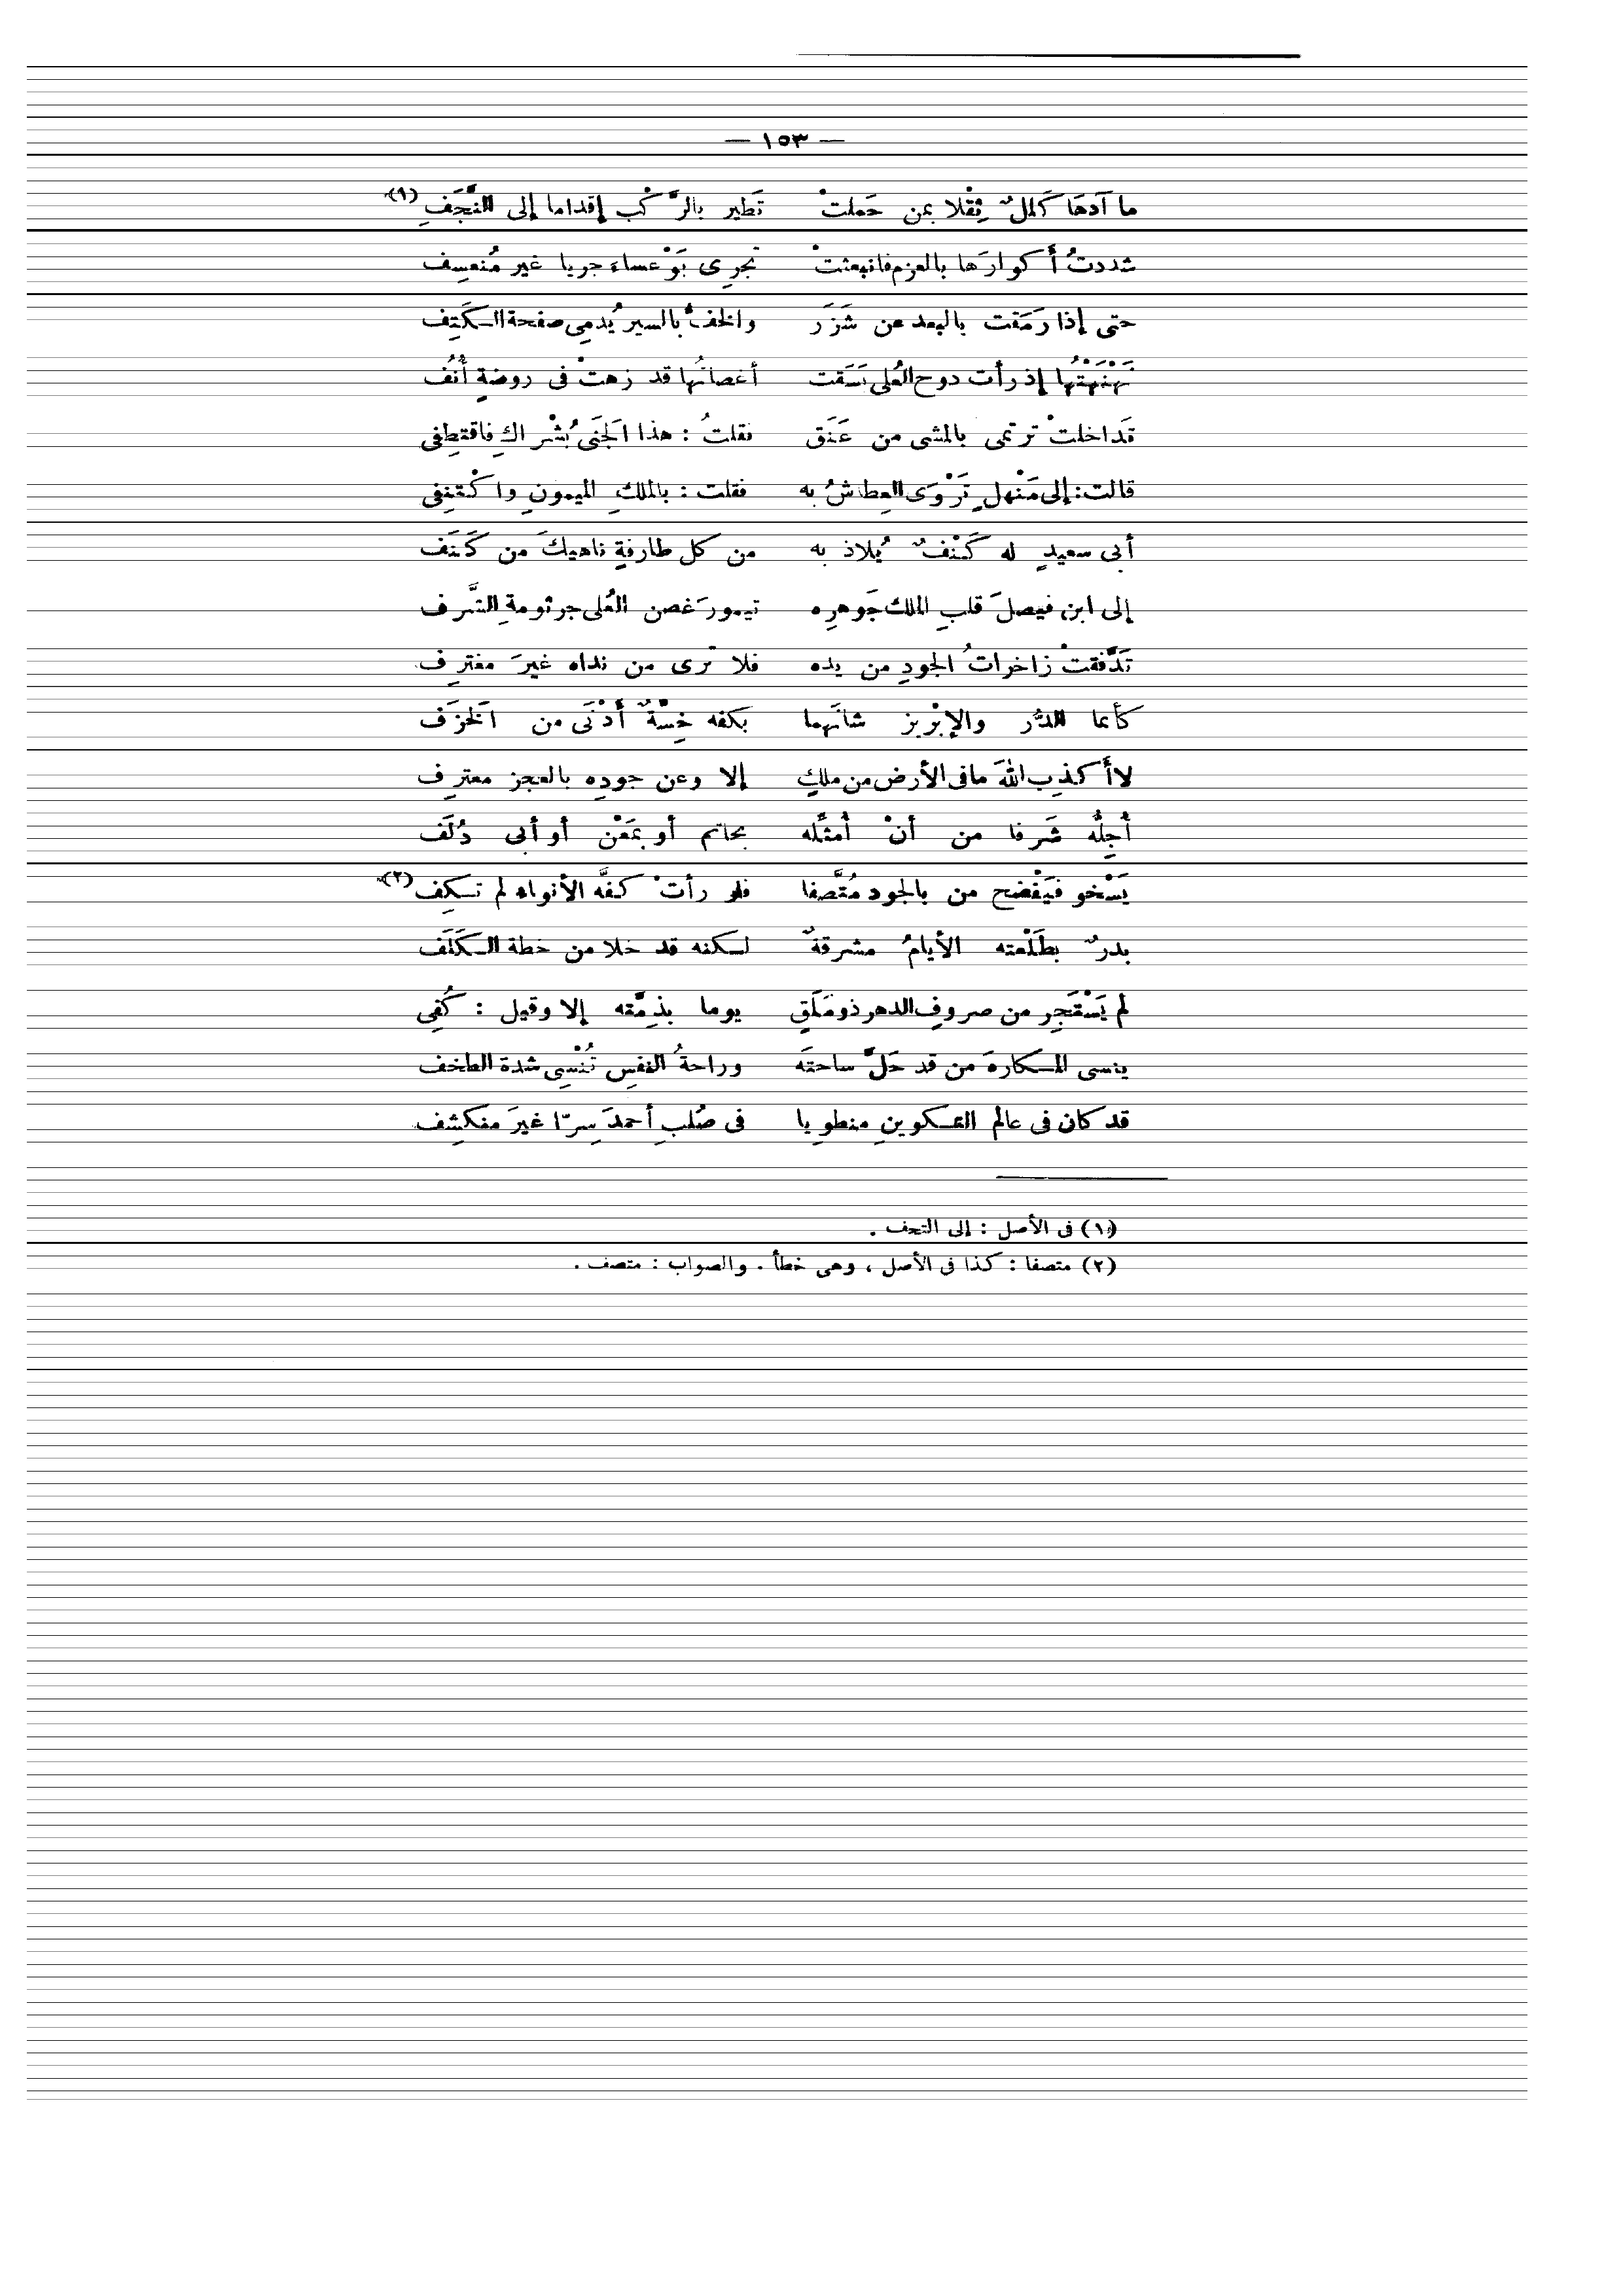 — ١٥٣ —
ما آدهَا كَلَلٌ ثِقْلا بمن حَملتْ تَطير بالرَّكْب إقداما إلى النَّجَفِ (١)
شددتُ أَكوارَها بالعزم فانبعثتْ تجرِى بَوْعساءَ جريا غير مُنعسِف
حتى إذا رَمَقت بالبعد عن شَزَر والخفُّ بالسير يُدمِى صفحة الكَتِف
نَهْنَهْتُها إذ رأت دوح العُلى بَسَقت أغصانُها قد زهتْ فى روضةٍ أُنُف
تَداخلتْ ترتمى بالمشى من عَنَق فقلتُ : هذا الَجنَى بُشْراكِ فاقتطِفى
قالت : إلى مَنْهلٍ تَرْوَى العِطاشُ به فقلت : بالملكِ الميمونِ واكْتنِفى
أبى سعيدٍ له كَنَفٌ يُلاذ به من كل طارفةٍ ناهيكَ من كَنَف
إلى ابن فيصلَ قلبِ الملك جَوهرِه تيمورَ غصن العُلى جرثومةِ الشَّرف
تَدَفَّقتْ زاخراتُ الجودِ من يده فلا تَرى من نداه غيرَ مغترِف
كأنما الدُّر والإبْريز شانَهما بكفه خِسَّةٌ أَدْنَى من الَخزَف
لا أَكذِب اللهَ ما فى الأرض من ملكٍ إلا وعن جودِه بالعجز معترِف
أُجِلُّه شَرفا من أنْ أُمثِّله بحاتم أو بمَعْن أو أبى دُلَف
يَسْخو فيَفْضح من بالجود مُتَّصفا فلو رأتْ كفَّه الأنواء لم تَكِف (٢)
بدرٌ بطَلْعته الأيامُ مشرقةٌ لكنه قد خلا من خطة الكَلَف
لم يَسْتَجِر من صروفِ الدهر ذو مَلَقٍ يوما بذمَّته إلا وقيل : كُفِى
ينسى المكارهَ من قد حَلَّ ساحتَه وراحةُ النفسِ تُنْسِى شدة الطخف
قد كان فى عالم التكوينِ منطوِيا فى صُلبِ أحمدَ سِرّا غيرَ منكشِف
(١) فى الأصل : إلى التحف .
(٢) متصفا : كذا فى الأصل ، وهى خطأ . والصواب : متصف .